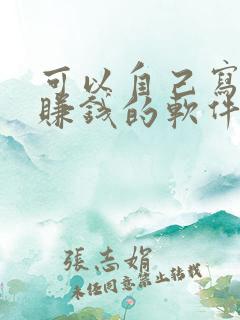 可以自己寫
賺錢的軟件
張志娟
未经同意禁止转载